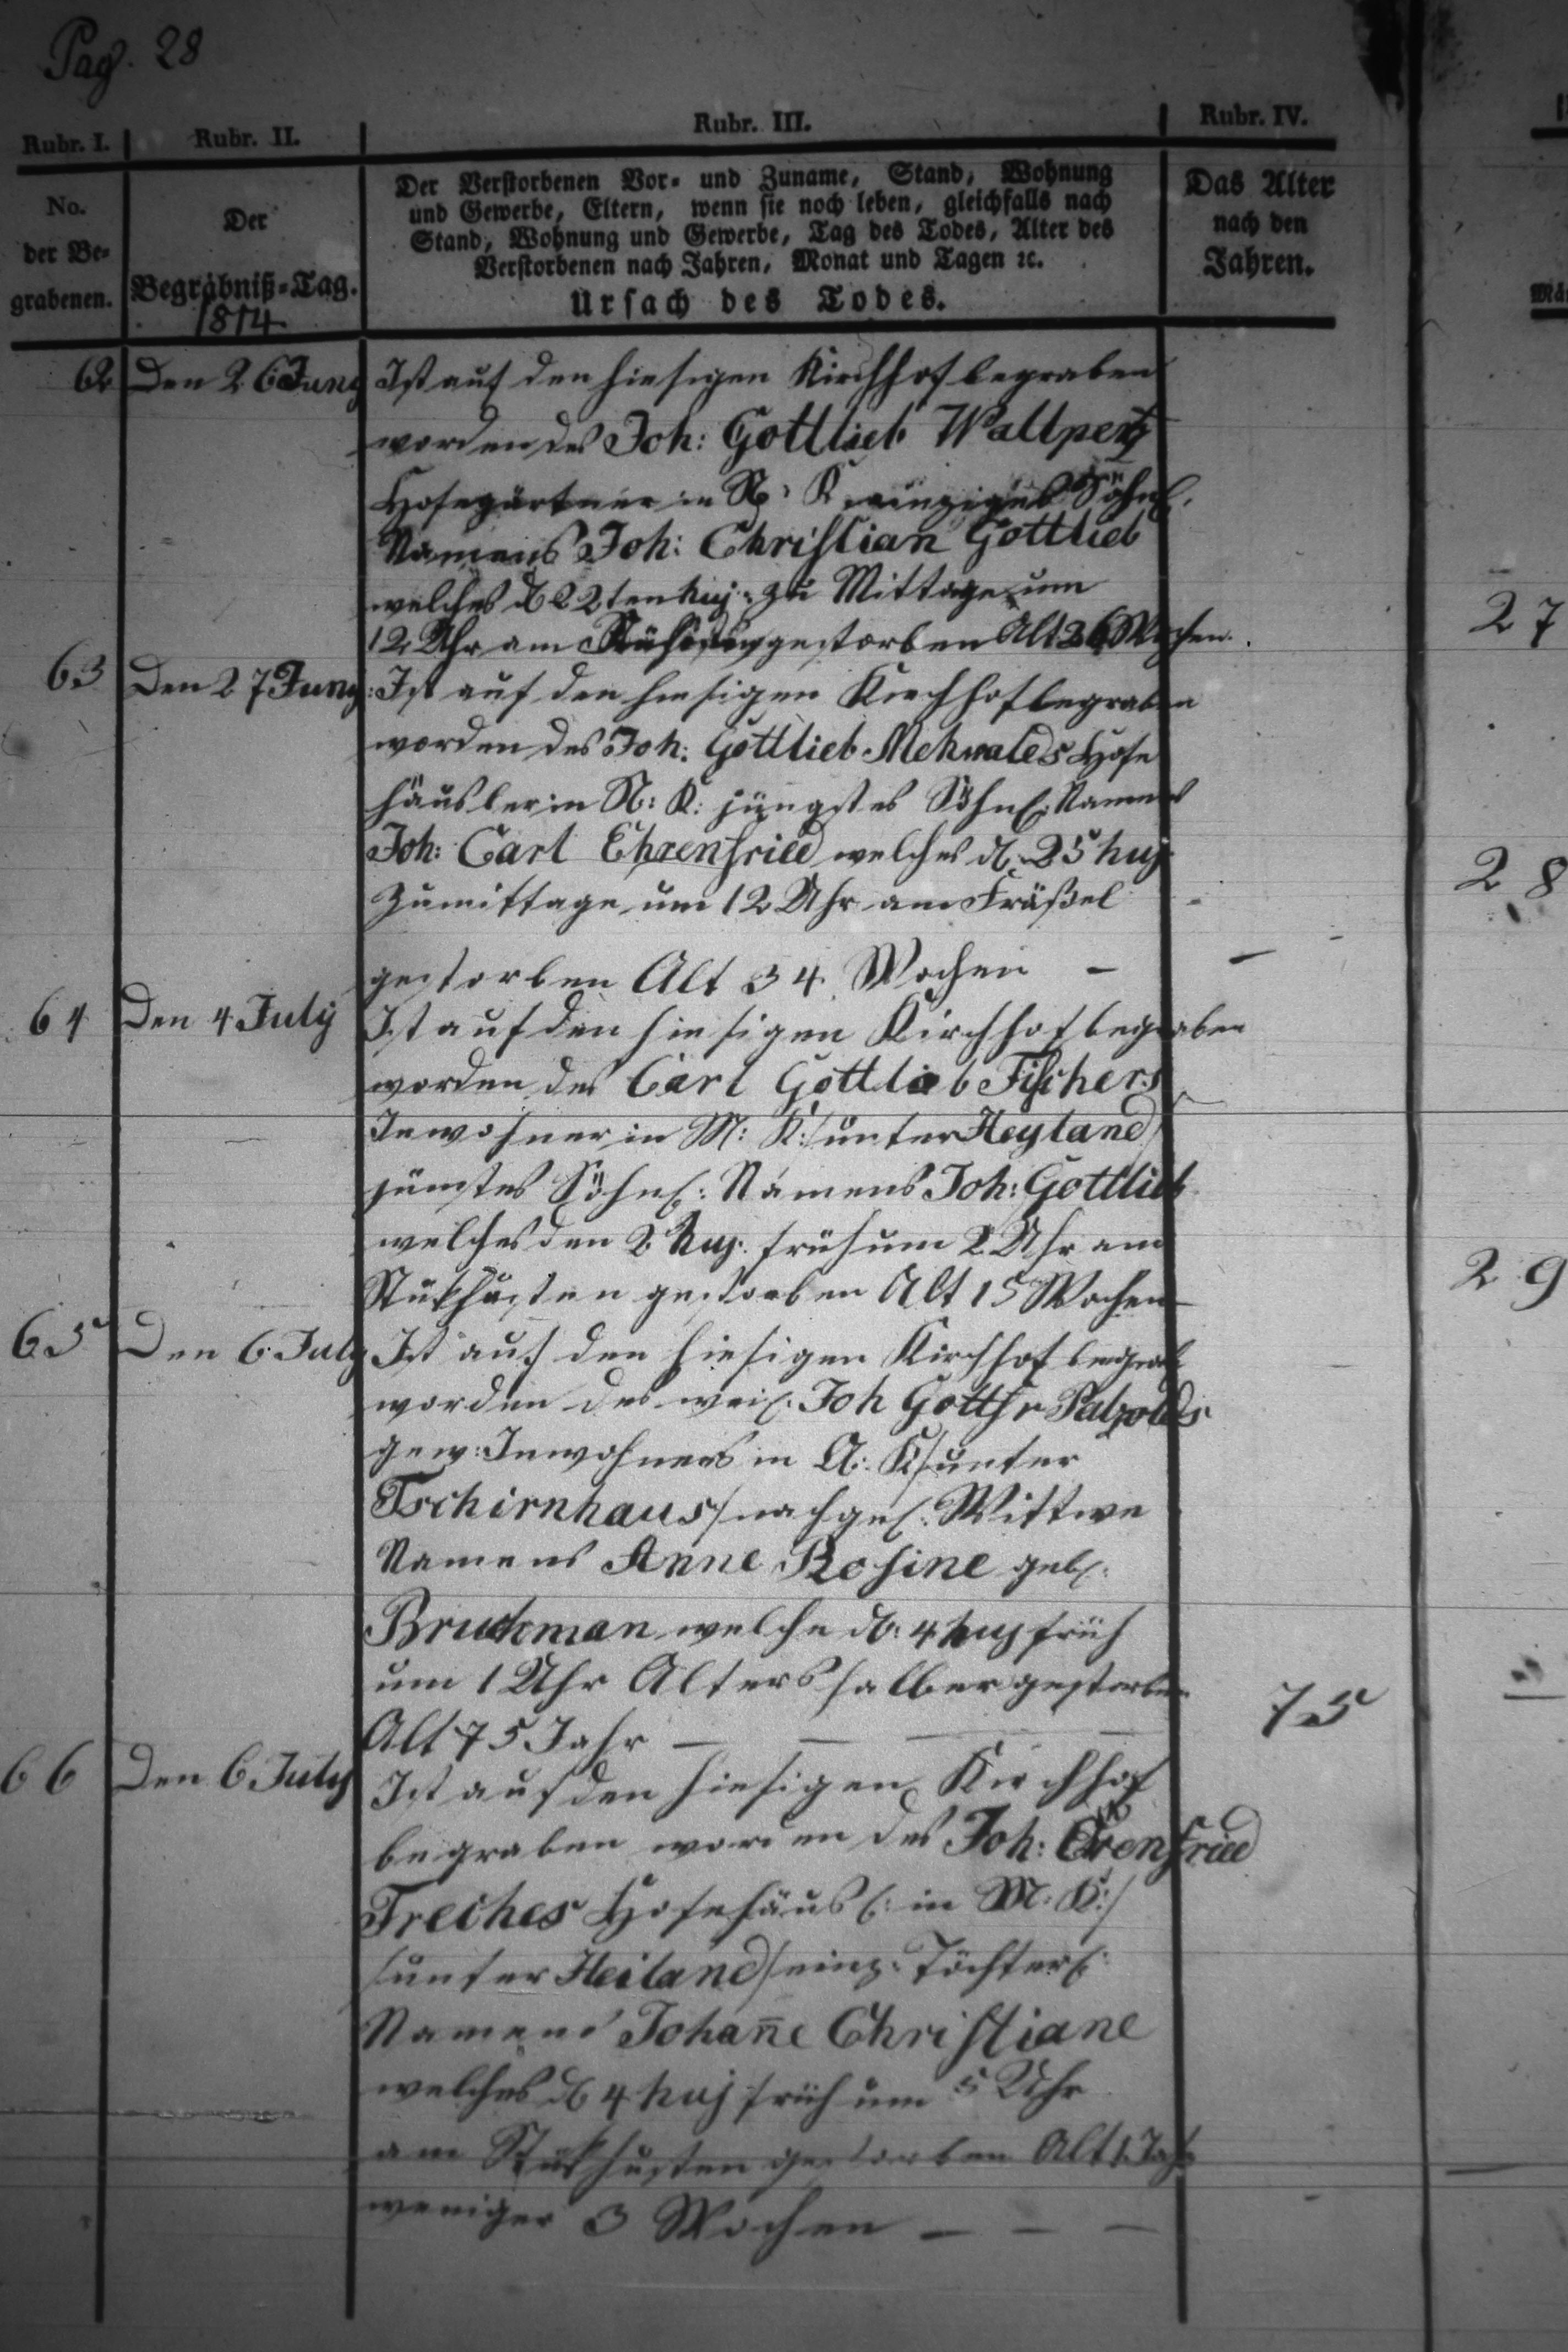 Pag. 28
Rubr. I.
Rubr. II.
Rubr. III.
Rubr. IV.
No.
der Be-
grabenen.
Der
Begräbniß-Tag.
1814
Der Verstorbenen Vor- und Zuname, Stand, Wohnung
und Gewerbe, Eltern, wenn sie noch leben, gleichfalls nach
Stand, Wohnung und Gewerbe, Tag des Todes, Alter des
Verstorbenen nach Jahren, Monat und Tagen ꝛc.
Ursach des Todes.
Das Alter
nach den
Jahren.
62 Den 26 Juny Ist auf den hiesigen Kirchhof begraben
worden des Joh: Gottlieb
Hofegärtner in N: K einziges Söhnl.
Namens Joh: Christian Gottlieb
welches d 22ten huj: zu Mittage um
12 Uhr am gestorben Alt 26 Wochen.
27
63 Den 27 Juny: Ist auf den hiesigen Kirchhof begraben
worden des Joh: Gottlieb Mehwalds Hofe
häusler in N: K: jüngstes Söhnl. Namens
Joh: Carl Ehrenfried welches d. 25 huj
28
zumittage um 12 Uhr am Fräßel
gestorben Alt 34 Wochen –
64 Den 4 July Ist auf den hiesigen Kirchhof begraben
worden des Carl Gottlieb Fischers
Inwohner in M: K:/unter Heyland/
jüngstes Söhnl: Namens Joh: Gottlieb
welches den 2 huj. früh um 2 Uhr am
29
Stükhusten gestorben Alt 15 Wochen –
65 Den 6. July Ist auf den hiesigen Kirchhof begrab
worden des weil. Joh Gottfr Patzolds
gew: Inwohners in N: K/unter
Tschirnhaus/nachgel. Wittwe
Namens Anne Rosine geb.
Bruckman welche d. 4 huj früh
um 1 Uhr Alters halber gestorben
Alt 75 Jahr – – – – 75
66 Den 6 July Ist auf den hiesigen Kirchhof
begraben worden des Joh: Ehrenfried
Treches Hofehäusl: in M: K:/
/unter Heiland/einz: Töchterl:
Namens Johañe Christiane
welches d 4 huj früh um 5 Uhr
am Stükhusten gestorben Alt 1 Jahr
weniger 3 Wochen – – –